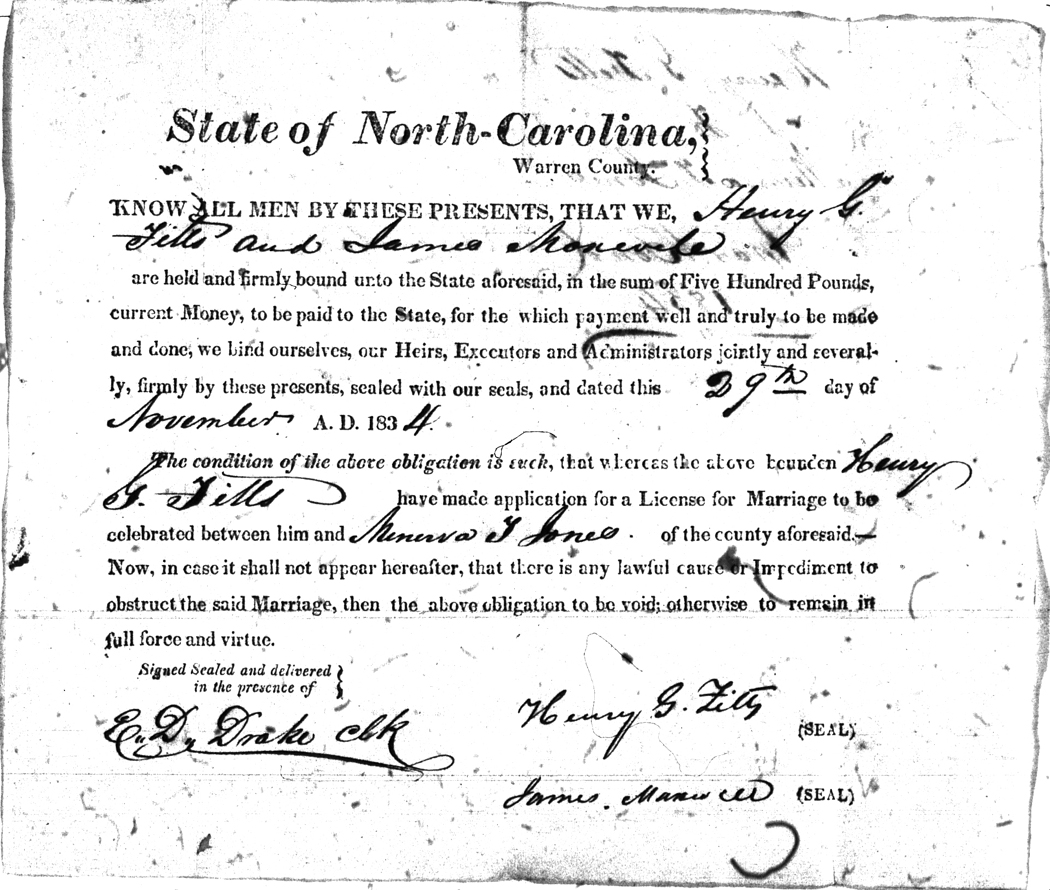 State of North-Carolina,
Warren County.
KNOW ALL MEN BY THESE PRESENTS, THAT WE, Henry G.
Fitts and James Maxwell
are held and firmly bound unto the State aforesaid, in the sum of Five Hundred Pounds,
current Money, to be paid to the State, for the which payment well and truly to be made
and done, we bind ourselves, our Heirs, Executors and Administrators jointly and several-
ly, firmly by these presents, sealed with our seals, and dated this 29th day of
November A. D. 1834.
The condition of the above obligation is such, that whereas the above bounden Henry
G. Fitts have made application for a License for Marriage to be
celebrated between him and Minerva F Jones. of the county aforesaid.—
Now, in case it shall not appear hereafter, that there is any lawful cause or Impediment to
obstruct the said Marriage, then the above obligation to be void; otherwise to remain in
full force and virtue.
Signed Sealed and delivered
in the presence of
E. D. Drake Clk
Henry G. Fitts
(SEAL)
James. Maxwell (SEAL)